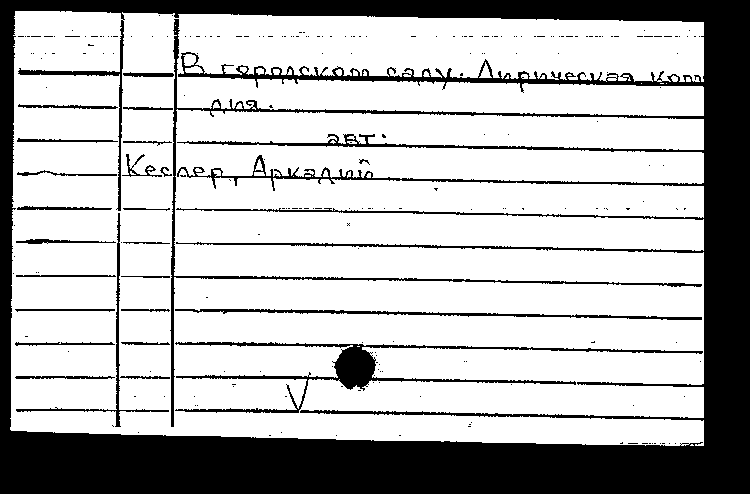 В городском саду. Лирическая ком
дия.
авт:
Кеслер, Аркадий